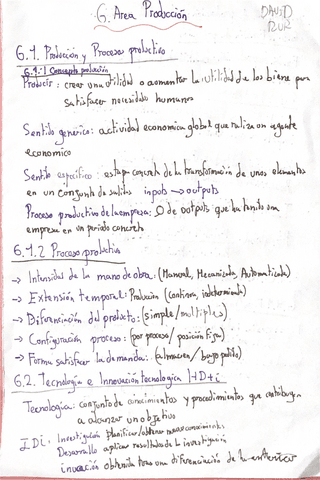 6. Area Producción
DAVID
RUR
6.1. Producción y Proceso productivo
6.1.1 Concepto producción
Producir: crear una utilidad o aumentar la utilidad de los bienes para
satisfacer necesidades humanas
Sentido generico: actividad economica global que realiza un agente
economico
Sentido especifico: etapa concreta de la transformación de unos elementos
en un conjunto de salidas inputs → outputs
Proceso productivo de la empresa: O de outputs que ha tenido una
empresa en un periodo concreto
6.1.2 Proceso productivo
→ Intensidad de la mano de obra: (Manual, Mecanizada, Automatizada)
→ Extensión temporal: Producción (continua, indeterminada)
→ Diferenciación del producto: (simple/multiples)
→ Configuración proceso: (por proceso/ posición fija)
→ Forma satisfacer la demanda: (almacen/ bajo pedido)
6.2. Tecnologia e Innovación tecnologica I+D+i
Tecnologia: conjunto de conocimientos y procedimientos que contribuyen
a alcanzar un objetivo
IDi: Investigación Planificar/obtener nuevos conocimientos
Desarrollo aplicar resultados de la investigación
innovación obtenida una diferenciación de la